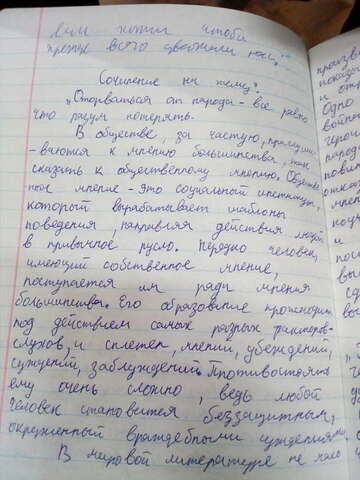 вам нужно чтобы
прежде всего уважали вас."
Сочинение на тему:
"Оторваться от народа - все равно
что разум потерять.
В обществе, за частую, прислуши-
-ваются к мнению большинства, так
сказать к общественному мнению. Обществен
ное мнение - это социальный институт,
который вырабатывает шаблоны
поведения, направляя действия людей
в привычное русло. Нередко человек,
имеющий собственное мнение,
поступается им ради мнения
большинства. Его образование происходит
под действием самых разных факторов-
слухов, и сплетен, мнений, убеждений,
суждений, заблуждений. Противостоять
ему очень сложно, ведь любой
человек становится беззащитным,
окруженный враждебными суждениями.
В мировой литературе не мало
произв
показа
и отр
Одно
войны
герои
народ
повин
отка
мнен
поэ
и
пос
вы
сд
в